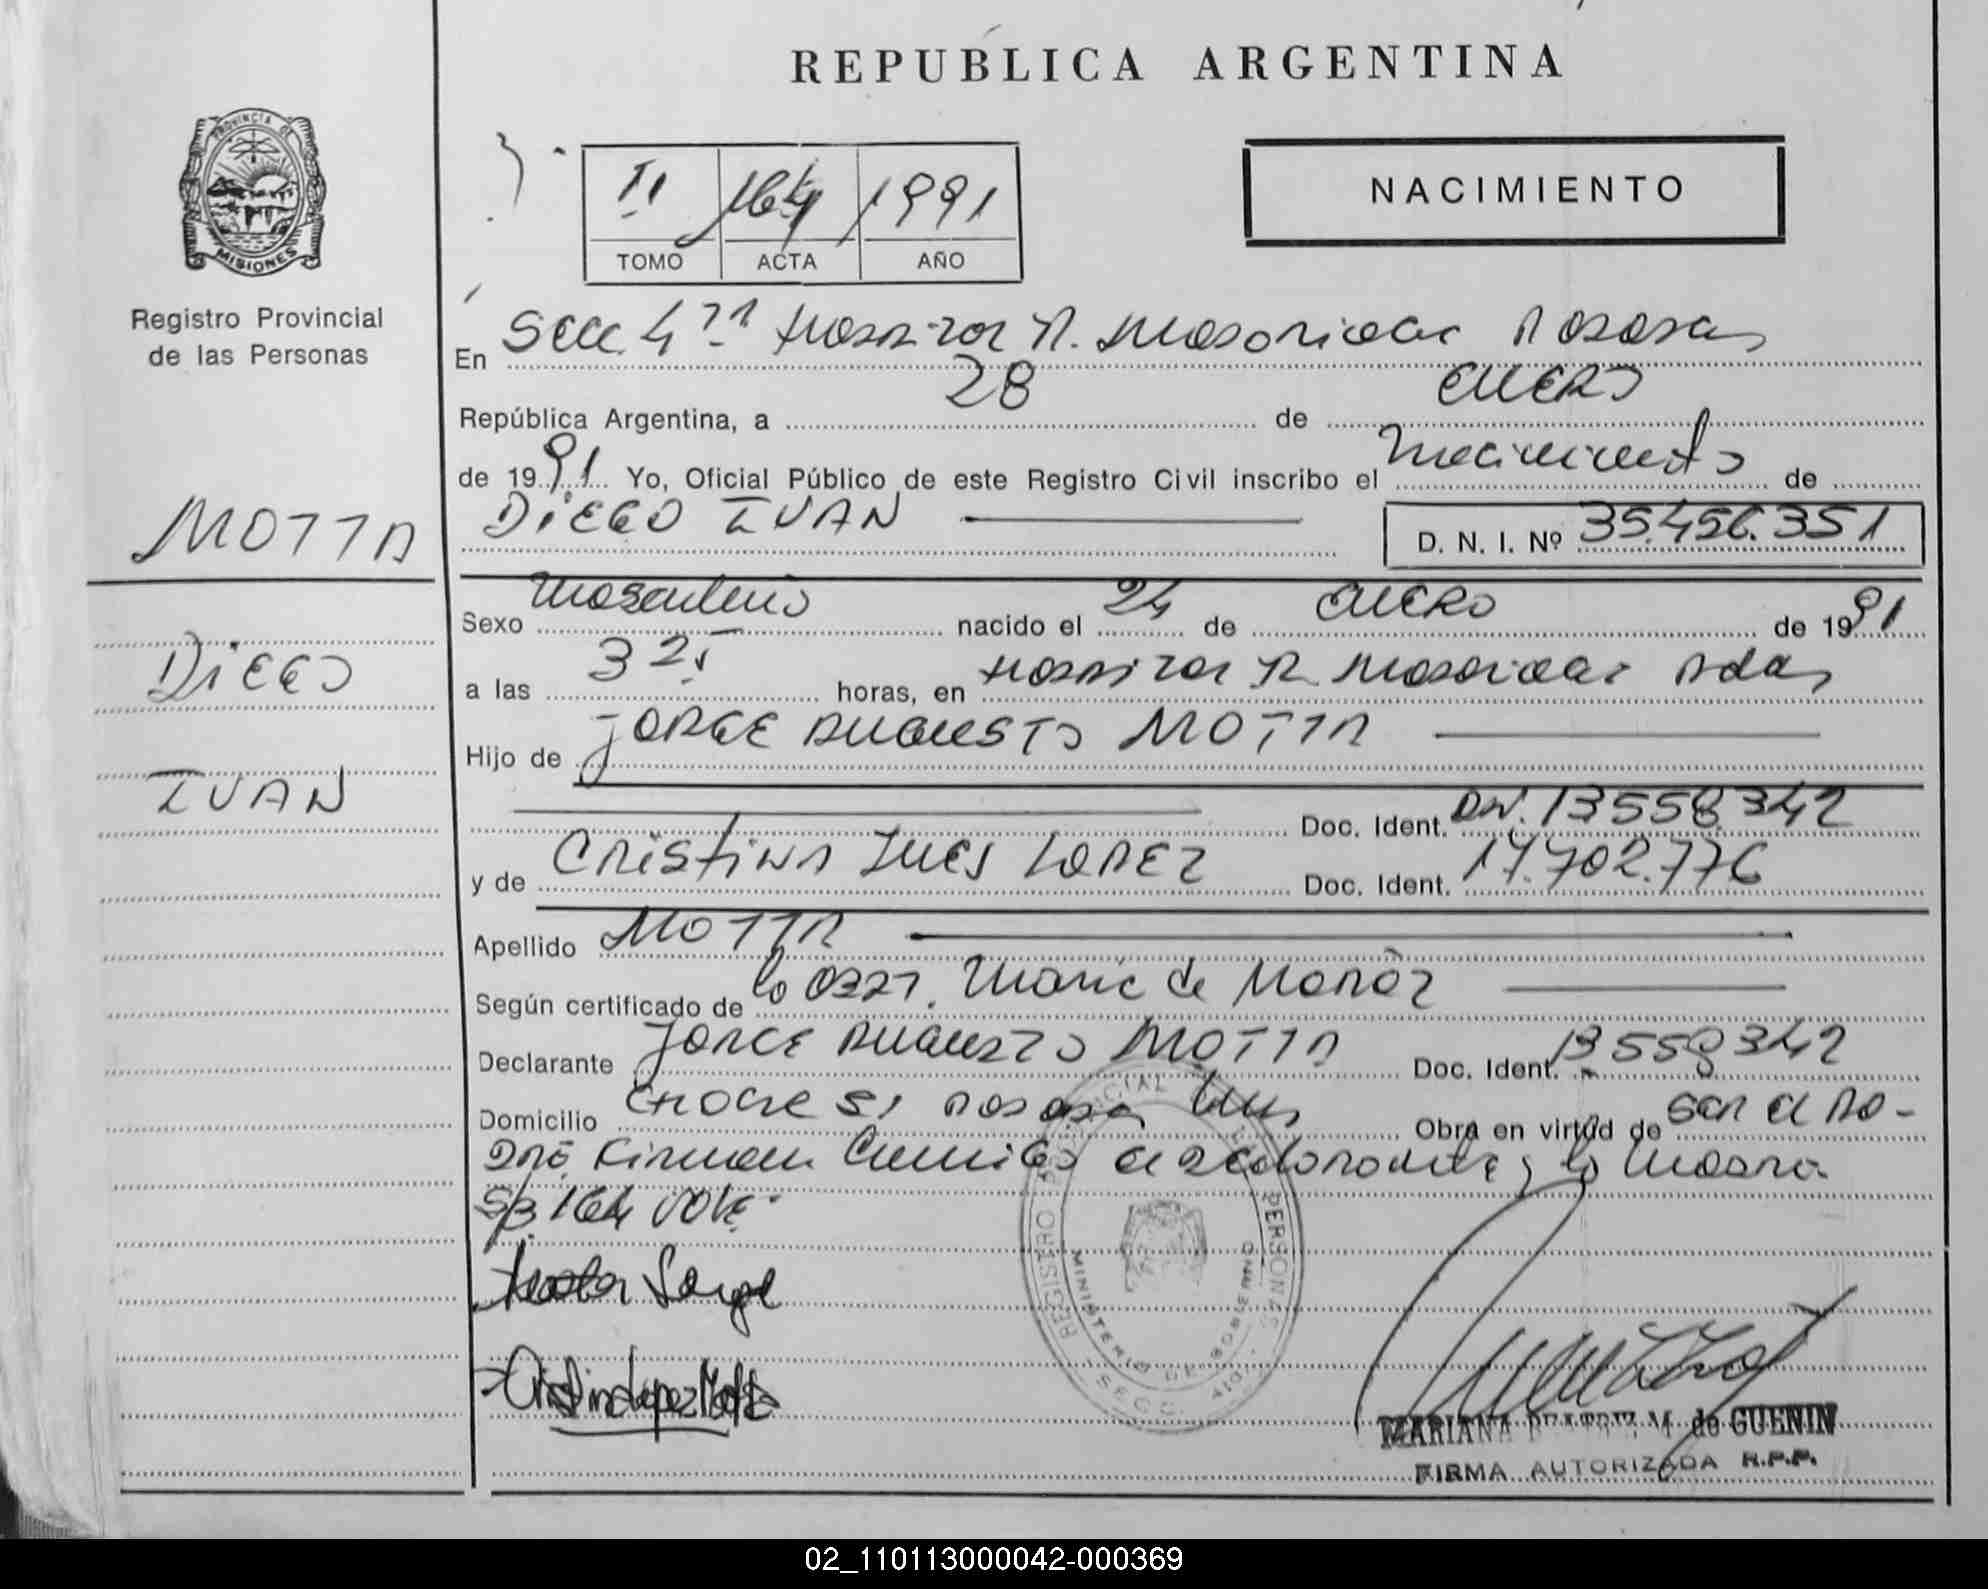 REPUBLICA ARGENTINA
PROVINCIA DE
MISIONES
Registro Provincial
de las Personas
II 164 1991
TOMO ACTA AÑO
NACIMIENTO
En Secc. 4ta Hospital R. Madariaga Posadas
República Argentina, a 28 de ENERO
de 1991 Yo, Oficial Público de este Registro Civil inscribo el nacimiento de
DIEGO IVAN
D. N. I. Nº 35.456.351
MOTTA
DIEGO
IVAN
Sexo Masculino nacido el 24 de ENERO de 1991
a las 3 25 horas, en Hospital R. Madariaga Pdas,
Hijo de JORGE AUGUSTO MOTTA
Doc. Ident. DNI. 13558342
y de CRISTINA INES LOPEZ Doc. Ident. 17.702.776
Apellido MOTTA
Según certificado de la Obst. Maria de
Declarante JORGE AUGUSTO MOTTA Doc. Ident. 13558342
Domicilio 51 Posadas Mnes Obra en virtud de ser el pa-
dre. Firman el declarante y la madre
S/B 164 VALE
Motta Jorge
Cristina Lopez Motta
REGISTRO PROVINCIAL DE LAS PERSONAS
MINISTERIO DE GOBIERNO
SECC. 4ta
MARIANA BEATRIZ M. de GUENIN
FIRMA AUTORIZADA R.P.P.
02_110113000042-000369